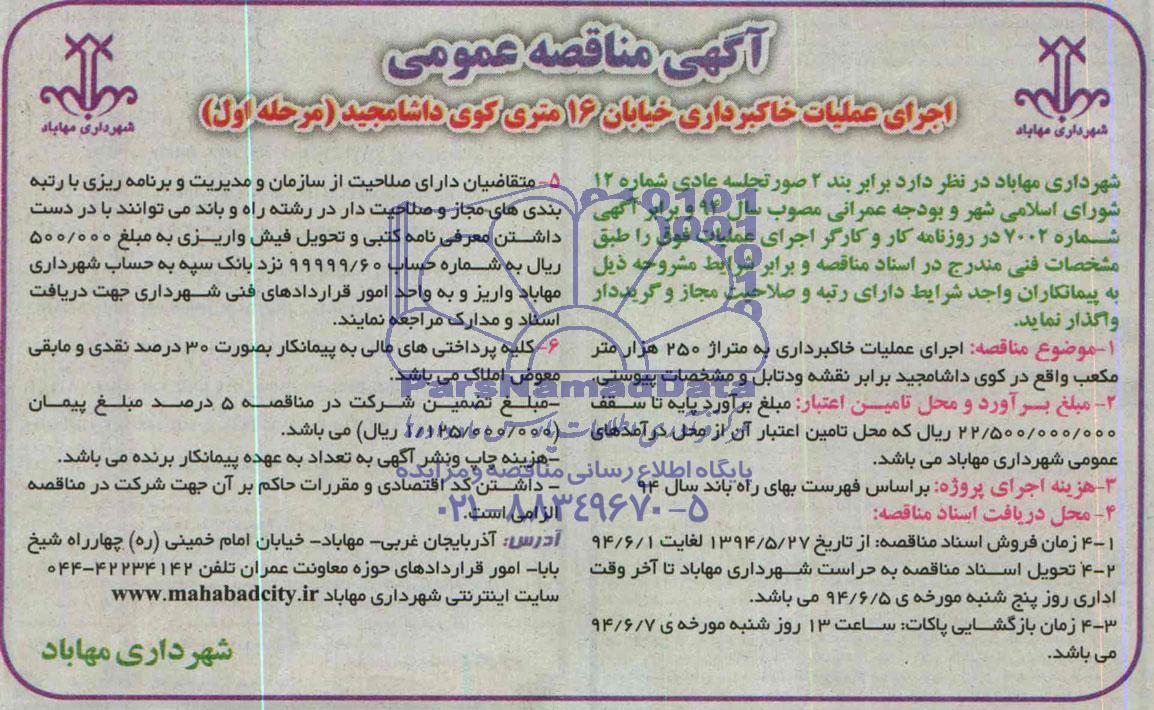 آگهی مناقصه عمومی
اجرای عملیات خاکبرداری خیابان ۱۶ متری کوی داشامجید (مرحله اول)
شهرداری مهاباد
شهرداری مهاباد
شهرداری مهاباد در نظر دارد برابر بند ۲ صورتجلسه عادی شماره ۱۲
شورای اسلامی شهر و بودجه عمرانی مصوب سال ۹۴ و برابر آگهی
شماره ۷۰۰۲ در روزنامه کار و کارگر اجرای عملیات فوق را طبق
مشخصات فنی مندرج در اسناد مناقصه و برابر شرایط مشروحه ذیل
به پیمانکاران واجد شرایط دارای رتبه و صلاحیت مجاز و گریددار
واگذار نماید.
۱-موضوع مناقصه: اجرای عملیات خاکبرداری به متراژ ۲۵۰ هزار متر
مکعب واقع در کوی داشامجید برابر نقشه ودتایل و مشخصات پیوستی.
۲- مبلغ برآورد و محل تامین اعتبار: مبلغ برآورد پایه تا سقف
۲۲/۵۰۰/۰۰۰/۰۰۰ ریال که محل تامین اعتبار آن از محل درآمدهای
عمومی شهرداری مهاباد می باشد.
۳-هزینه اجرای پروژه: براساس فهرست بهای راه باند سال ۹۴
۴- محل دریافت اسناد مناقصه:
۴-۱ زمان فروش اسناد مناقصه: از تاریخ ۱۳۹۴/۵/۲۷ لغایت ۹۴/۶/۱
۴-۲ تحویل اسناد مناقصه به حراست شهرداری مهاباد تا آخر وقت
اداری روز پنج شنبه مورخه ی ۹۴/۶/۵ می باشد.
۴-۳ زمان بازگشایی پاکات: ساعت ۱۳ روز شنبه مورخه ی ۹۴/۶/۷
می باشد.
۵- متقاضیان دارای صلاحیت از سازمان و مدیریت و برنامه ریزی با رتبه
بندی های مجاز و صلاحیت دار در رشته راه و باند می توانند با در دست
داشتن معرفی نامه کتبی و تحویل فیش واریزی به مبلغ ۵۰۰/۰۰۰
ریال به شماره حساب ۹۹۹۹۹/۶۰ نزد بانک سپه به حساب شهرداری
مهاباد واریز و به واحد امور قراردادهای فنی شهرداری جهت دریافت
اسناد و مدارک مراجعه نمایند.
۶- کلیه پرداختی های مالی به پیمانکار بصورت ۳۰ درصد نقدی و مابقی
معوض املاک می باشد.
-مبلغ تضمین شرکت در مناقصه ۵ درصد مبلغ پیمان
(۱/۱۲۵/۰۰۰/۰۰۰ ریال) می باشد.
-هزینه چاپ ونشر آگهی به تعداد به عهده پیمانکار برنده می باشد.
- داشتن کد اقتصادی و مقررات حاکم بر آن جهت شرکت در مناقصه
الزامی است.
آدرس: آذربایجان غربی- مهاباد- خیابان امام خمینی (ره) چهارراه شیخ
بابا- امور قراردادهای حوزه معاونت عمران تلفن ۴۲۲۳۴۱۴۲-۰۴۴
سایت اینترنتی شهرداری مهاباد www.mahabadcity.ir
شهرداری مهاباد
ParsNamadData
پایگاه اطلاع رسانی مناقصه و مزایده
۰۲۱-۸۸۳۴۹۶۷۰-۵